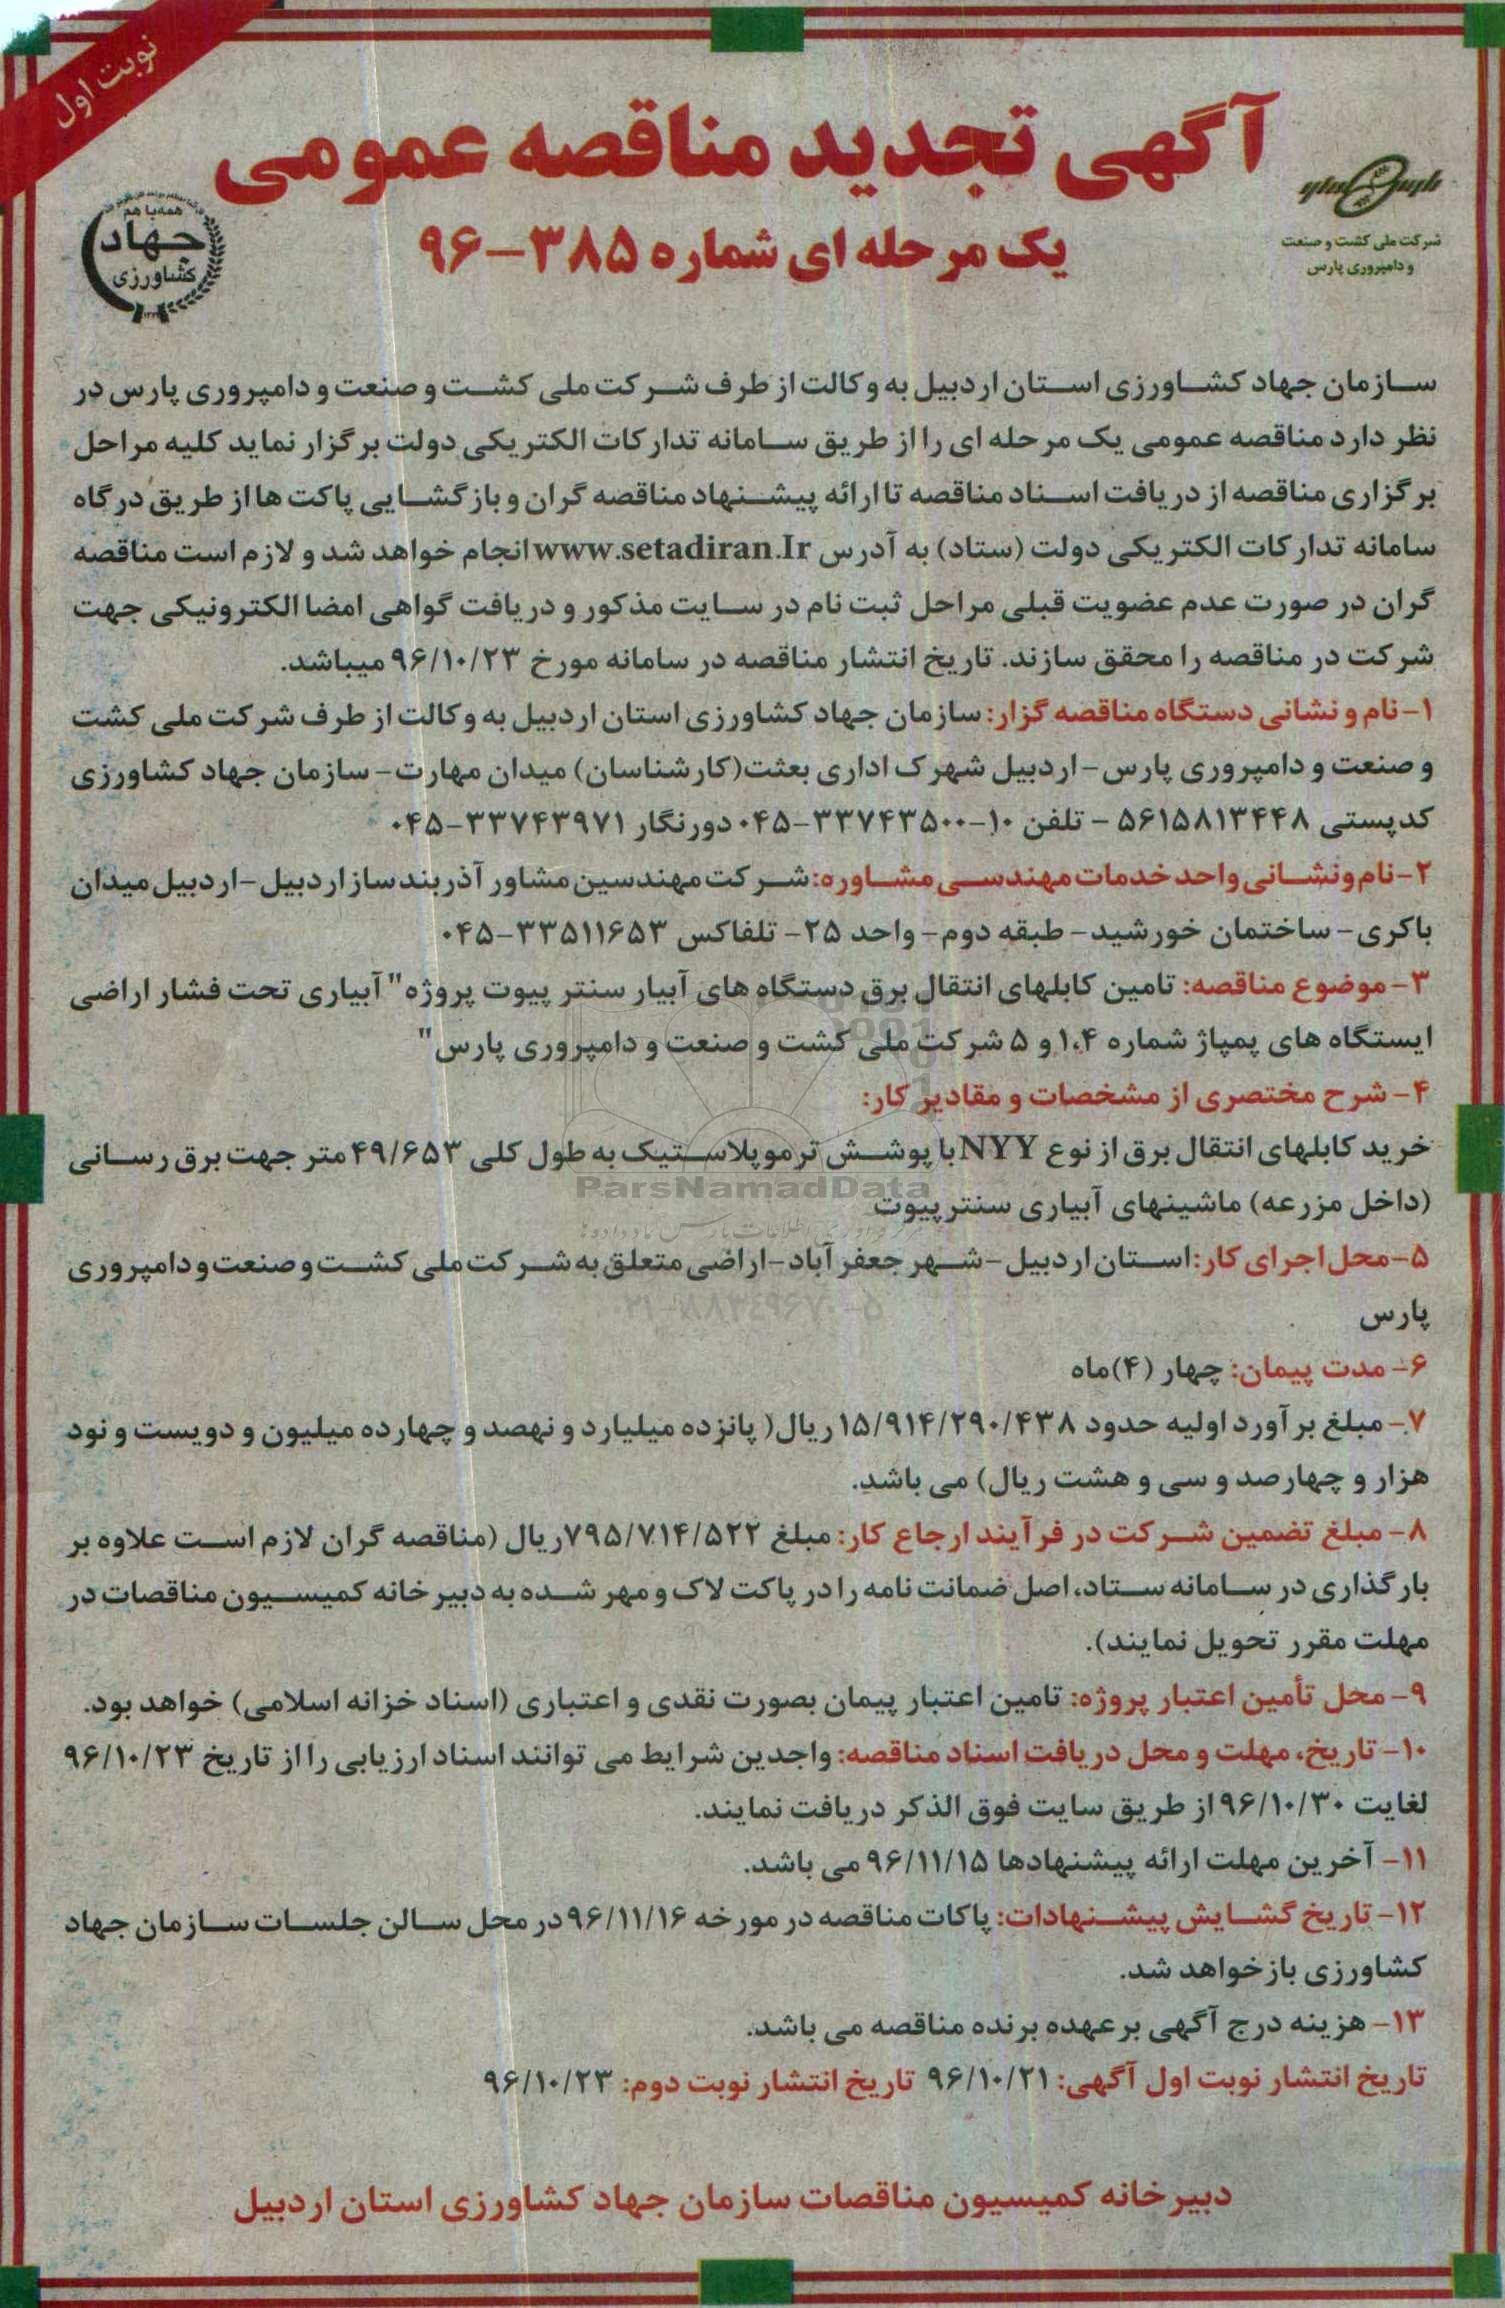 نوبت اول
آگهی تجدید مناقصه عمومی
یک مرحله ای شماره ۳۸۵-۹۶
شرکت ملی کشت و صنعت
و دامپروری پارس
همه با هم
جهاد
کشاورزی
سازمان جهاد کشاورزی استان اردبیل به وکالت از طرف شرکت ملی کشت و صنعت و دامپروری پارس در
نظر دارد مناقصه عمومی یک مرحله ای را از طریق سامانه تدارکات الکتریکی دولت برگزار نماید کلیه مراحل
برگزاری مناقصه از دریافت اسناد مناقصه تا ارائه پیشنهاد مناقصه گران و بازگشایی پاکت ها از طریق درگاه
سامانه تدارکات الکتریکی دولت (ستاد) به آدرس www.setadiran.Ir انجام خواهد شد و لازم است مناقصه
گران در صورت عدم عضویت قبلی مراحل ثبت نام در سایت مذکور و دریافت گواهی امضا الکترونیکی جهت
شرکت در مناقصه را محقق سازند. تاریخ انتشار مناقصه در سامانه مورخ ۹۶/۱۰/۲۳ میباشد.
۱- نام و نشانی دستگاه مناقصه گزار: سازمان جهاد کشاورزی استان اردبیل به وکالت از طرف شرکت ملی کشت
و صنعت و دامپروری پارس- اردبیل شهرک اداری بعثت(کارشناسان) میدان مهارت- سازمان جهاد کشاورزی
کدپستی ۵۶۱۵۸۱۳۴۴۸ - تلفن ۱۰-۳۳۷۴۳۵۰۰-۰۴۵ دورنگار ۳۳۷۴۳۹۷۱-۰۴۵
۲- نام و نشانی واحد خدمات مهندسی مشاوره: شرکت مهندسین مشاور آذربندساز اردبیل- اردبیل میدان
باکری- ساختمان خورشید- طبقه دوم- واحد ۲۵- تلفاکس ۳۳۵۱۱۶۵۳-۰۴۵
۳- موضوع مناقصه: تامین کابلهای انتقال برق دستگاه های آبیار سنتر پیوت پروژه" آبیاری تحت فشار اراضی
ایستگاه های پمپاژ شماره ۱،۴ و ۵ شرکت ملی کشت و صنعت و دامپروری پارس"
۴- شرح مختصری از مشخصات و مقادیر کار:
خرید کابلهای انتقال برق از نوع NYY با پوشش ترموپلاستیک به طول کلی ۴۹/۶۵۳ متر جهت برق رسانی
(داخل مزرعه) ماشینهای آبیاری سنترپیوت
ParsNamadData
۵- محل اجرای کار: استان اردبیل- شهر جعفرآباد- اراضی متعلق به شرکت ملی کشت و صنعت و دامپروری
۰۲۱-۸۸۳۴۹۶۷۰-۵
پارس
۶- مدت پیمان: چهار (۴)ماه
۷- مبلغ برآورد اولیه حدود ۱۵/۹۱۴/۲۹۰/۴۳۸ ریال( پانزده میلیارد و نهصد و چهارده میلیون و دویست و نود
هزار و چهارصد و سی و هشت ریال) می باشد.
۸- مبلغ تضمین شرکت در فرآیند ارجاع کار: مبلغ ۷۹۵/۷۱۴/۵۲۲ ریال (مناقصه گران لازم است علاوه بر
بارگذاری در سامانه ستاد، اصل ضمانت نامه را در پاکت لاک و مهر شده به دبیرخانه کمیسیون مناقصات در
مهلت مقرر تحویل نمایند).
۹- محل تأمین اعتبار پروژه: تامین اعتبار پیمان بصورت نقدی و اعتباری (اسناد خزانه اسلامی) خواهد بود.
۱۰- تاریخ، مهلت و محل دریافت اسناد مناقصه: واجدین شرایط می توانند اسناد ارزیابی را از تاریخ ۹۶/۱۰/۲۳
لغایت ۹۶/۱۰/۳۰ از طریق سایت فوق الذکر دریافت نمایند.
۱۱- آخرین مهلت ارائه پیشنهادها ۹۶/۱۱/۱۵ می باشد.
۱۲- تاریخ گشایش پیشنهادات: پاکات مناقصه در مورخه ۹۶/۱۱/۱۶ در محل سالن جلسات سازمان جهاد
کشاورزی بازخواهد شد.
۱۳- هزینه درج آگهی برعهده برنده مناقصه می باشد.
تاریخ انتشار نوبت اول آگهی: ۹۶/۱۰/۲۱ تاریخ انتشار نوبت دوم: ۹۶/۱۰/۲۳
دبیرخانه کمیسیون مناقصات سازمان جهاد کشاورزی استان اردبیل